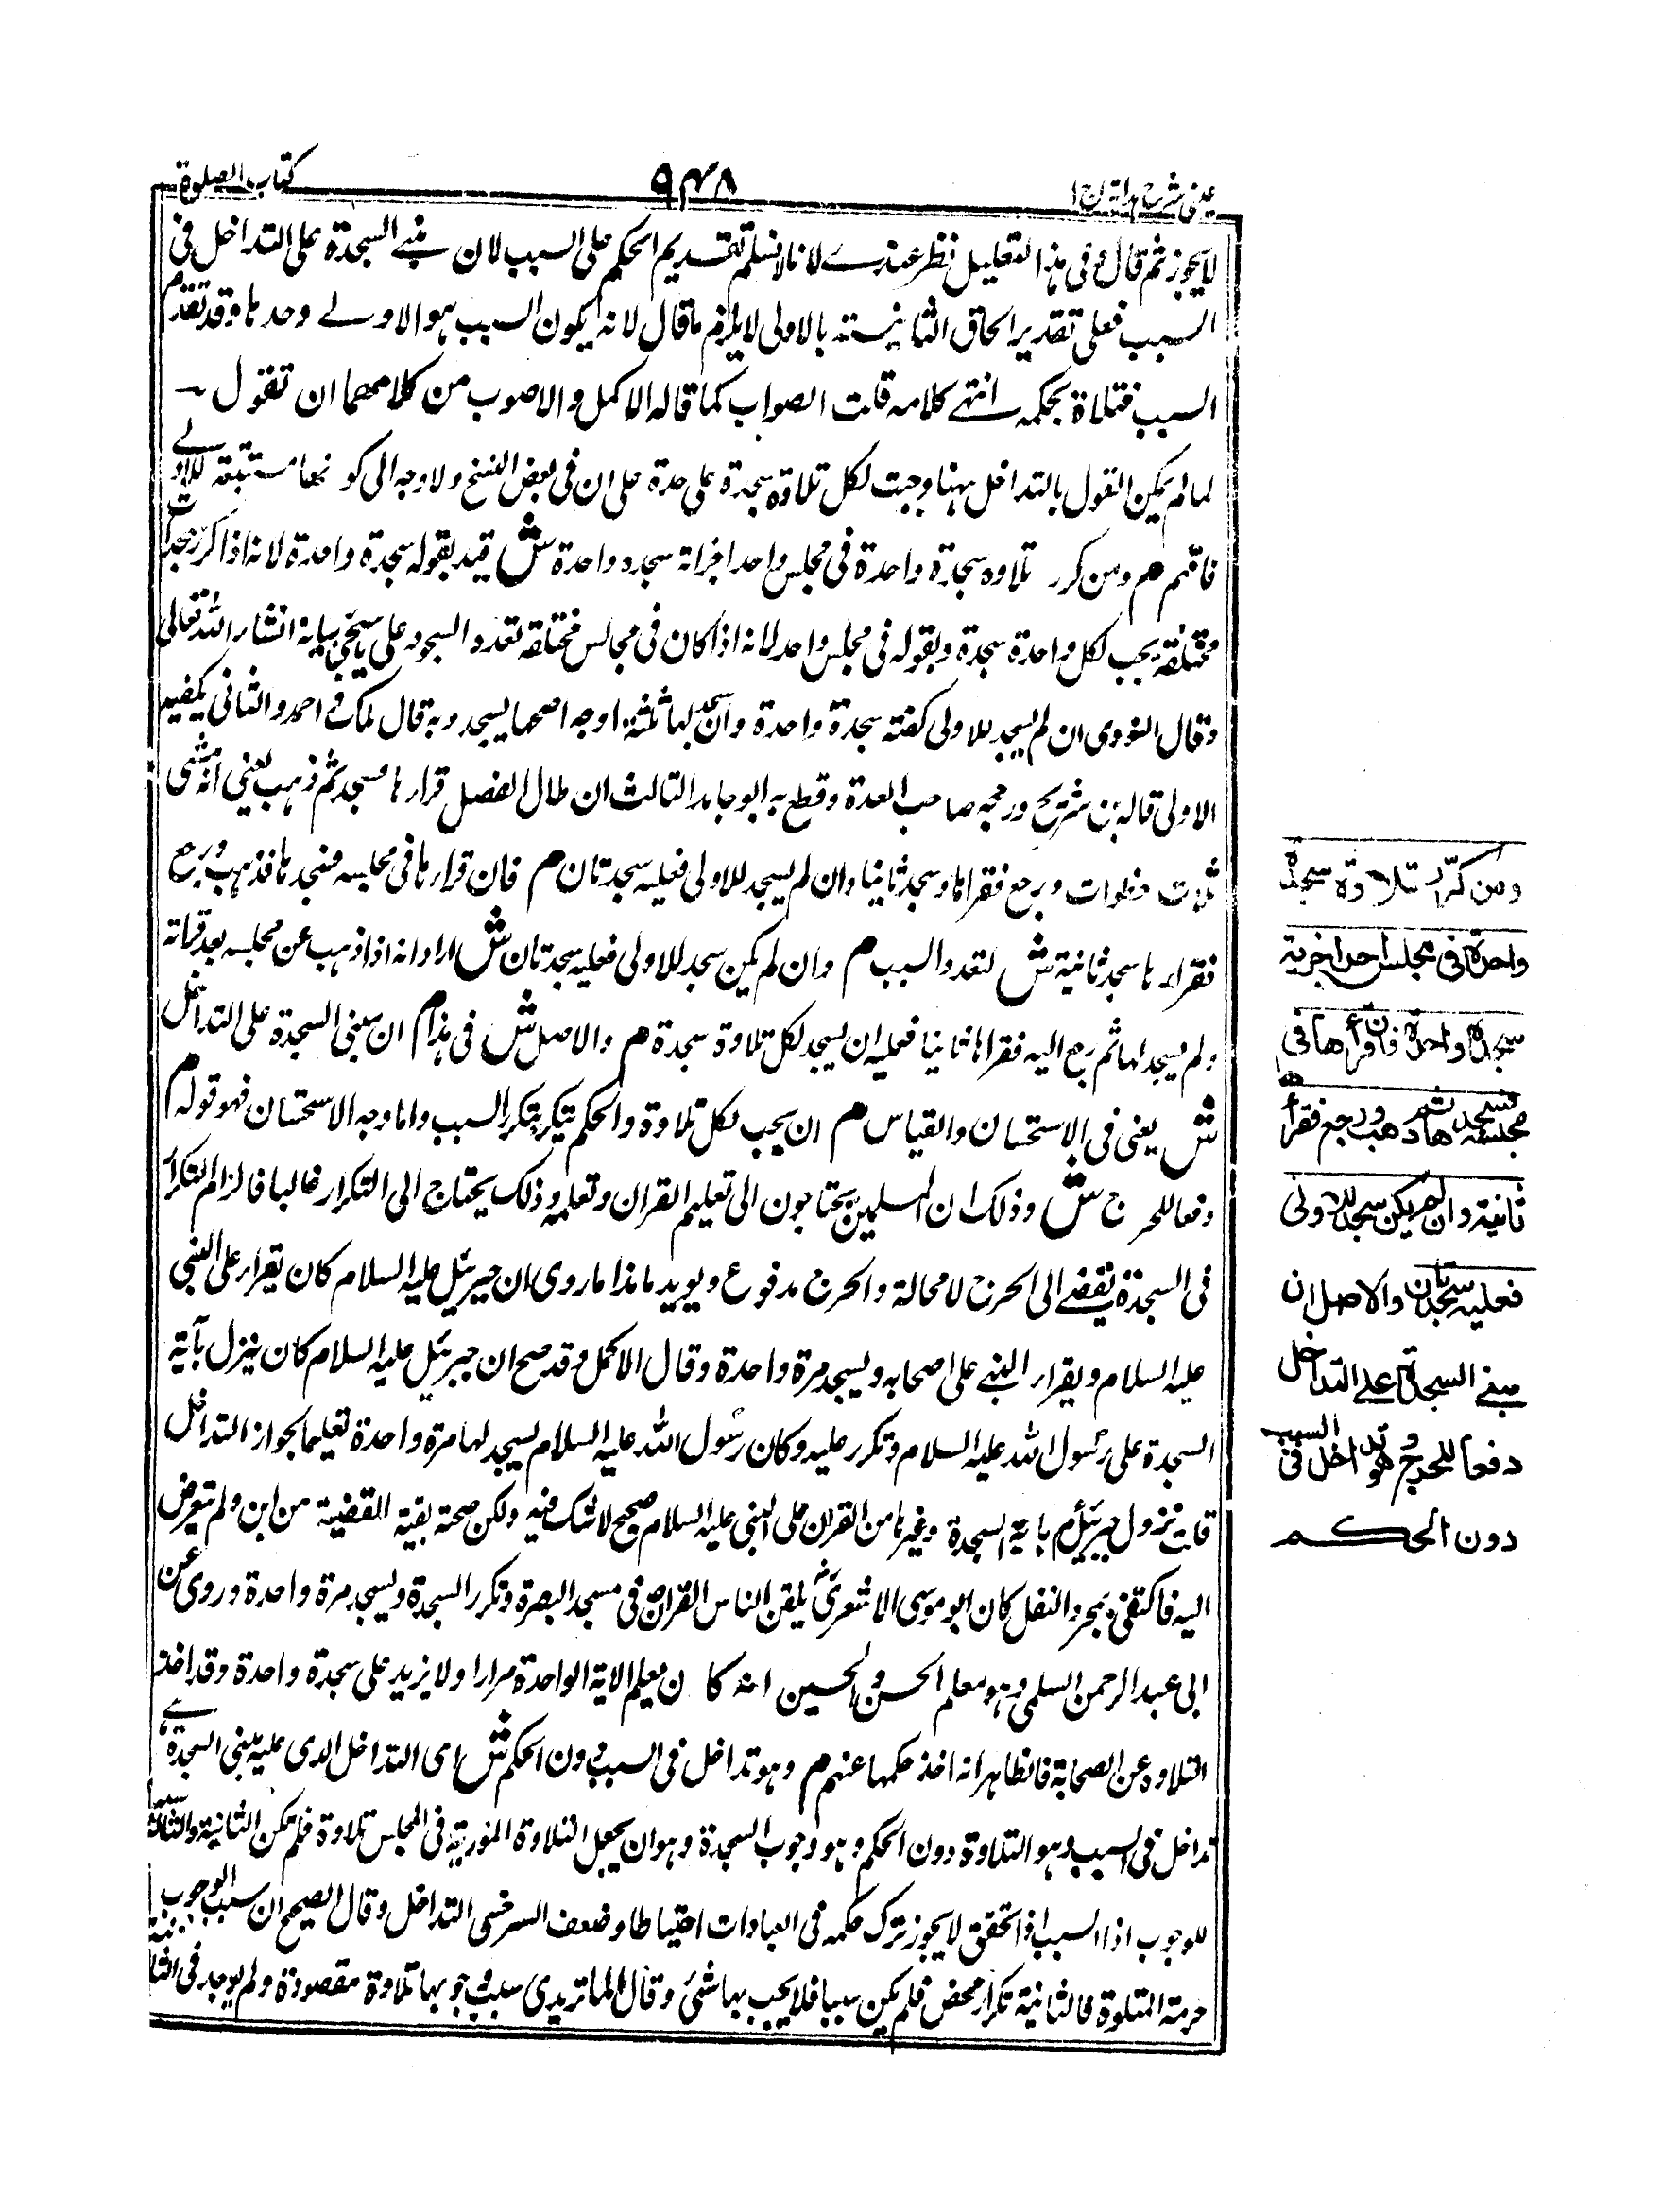 عینی شرح ہدایہ ج ۱
۹۴۸
كتاب الصلوة
لا يجوز ثم قال وفي هذا التعليل نظر عندے لانا لا نسلم تقديم الحكم على السبب لان مبنے السجدة على التداخل في
السبب فعلى تقدير الحاق الثانية بالاولى لا يلزم ما قال لانه يكون السبب هو الاولے وحدها وقد تقدم
السبب فتلاة بحكمه انتهے كلامه قلت الصواب كما قاله الاكمل والاصوب من كلامهما ان تقول
لما لم يمكن القول بالتداخل ههنا وجبت لكل تلاوة سجدة على حدة على ان في بعض النسخ ولا وجه الى كونها مستتبعة للاولے
فافهم م ومن كرر تلاوه سجدة واحدة في مجلس واحد اجزاته سجده واحدة ش قيد بقوله سجدة واحدة لانه اذا كرر سجدات
مختلفة يجب لكل واحدة سجدة وبقوله في مجلس واحد لانه اذا كان في مجالس مختلفه تعدد السجود على ما يجئ بيانه انشاء الله تعالى
وقال النووى ان لم يسجد للاولى كفته سجدة واحدة وان سجد لها ثلثة اوجه اصحها يسجد وبه قال مالك واحمد والثاني يكفيه
الاولى قاله بن شريح ورجحه صاحب العدة وقطع به ابو حامد الثالث ان طال الفصل قراءها فسجد ثم ذهب يعني انه مشى
ثلاث خطوات ورجع فقراها وسجد ثانيا وان لم يسجد للاولى فعليه سجدتان م فان قراءها في مجلسه فسجدها فذهب ورجع
فقراءها سجد ثانية ش لتعدد السبب م وان لم يكن سجد للاولى فعليه سجدتان ش اراد انه اذا ذهب عن مجلسه بعد قراته
ولم يسجد لها ثم رجع اليه فقراها ثانيا فعليه ان يسجد لكل تلاوة سجدة م والاصل ش في هذا م ان مبنى السجدة على التداخل
ش يعني في الاستحسان والقياس م ان يجب لكل تلاوة والحكم يتكرر بتكرر السبب واما وجه الاستحسان فهو قوله م
دفعا للحرج ش وذلك ان المسلمين يحتاجون الى تعليم القران وتعلمه وذلك يحتاج الى التكرار غالبا فالزام التكرار
في السجدة يفضے الى الحرج لا محالة والحرج مدفوع ويويد ماهذا ماروى ان جبرئيل عليه السلام كان يقراء على النبي
عليه السلام ويقراء النبے على اصحابه ويسجد مرة واحدة وقال الاكمل وقد صح ان جبرئيل عليه السلام كان ينزل بآية
السجدة على رسول الله عليه السلام وتكرر عليه وكان رسول الله عليه السلام يسجد لها مرة واحدة تعليما لجواز التداخل
قلت نزول جبرئيلؑ باية السجدة وغيرها من القران على النبي عليه السلام صحيح لا شك فيه ولكن صحة بقية القضية من اين ولم يتعرض
اليه فاكتفى بمجرد النقل كان ابو موسى الاشعرىؓ يلقن الناس القران في مسجد البصرة وتكرر السجدة ويسجد مرة واحدة وروى عن
ابي عبد الرحمن السلمى وهو معلم الحسن والحسين انه كان يعلم الاية الواحدة مرارا ولا يزيد على سجدة واحدة وقد اخذ
التلاوه عن الصحابة فالظاهر انه اخذ حكمها عنهم م وهو تداخل في السبب دون الحكم ش اى التداخل الذى عليه مبنى السجدة
تداخل في السبب وهو التلاوة دون الحكم وهو وجوب السجدة وهو ان يجعل التلاوة في المجلس تلاوة فلم تكن الثانية والثالثة سببا
للوجوب اذا السبب اذا تحقق لا يجوز ترك حكمه في العبادات احتياطا وضعف السرخسى التداخل وقال الصحيح ان سبب الوجوب
حرمة المتلوة فالثانية تكرار محض فلم يكن سببا فلا يجب بها شئ وقال الماتريدى سبب وجوبها تلاوة مقصودة ولم يوجد في الثانية
ومن كرّر تلاوة سجدة
واحدة في مجلس واحد اجزته
سجدة واحدة فان قرأها في
مجلسه فسجدها ثم ذهب ورجع فقرأ
ثانية وان لم يكن سجد للاولى
فعليه سجدتان والاصل ان
مبنے السجدة علے التداخل
دفعا للحرج وهو تداخل في السبب
دون الحكم